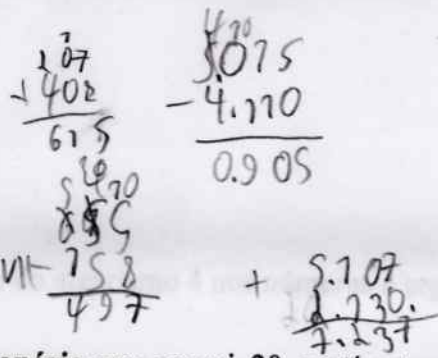 207
+ 408
615
4 10
5.015
- 4.110
0.905
655
- 158
497
+ 5.107
2.130
7.237